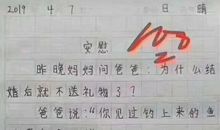 2019 4 7 日 晴
100
安慰
昨晚妈妈问爸爸:为什么结
婚后就不送礼物了?
爸爸说:“你见过钓上来的鱼